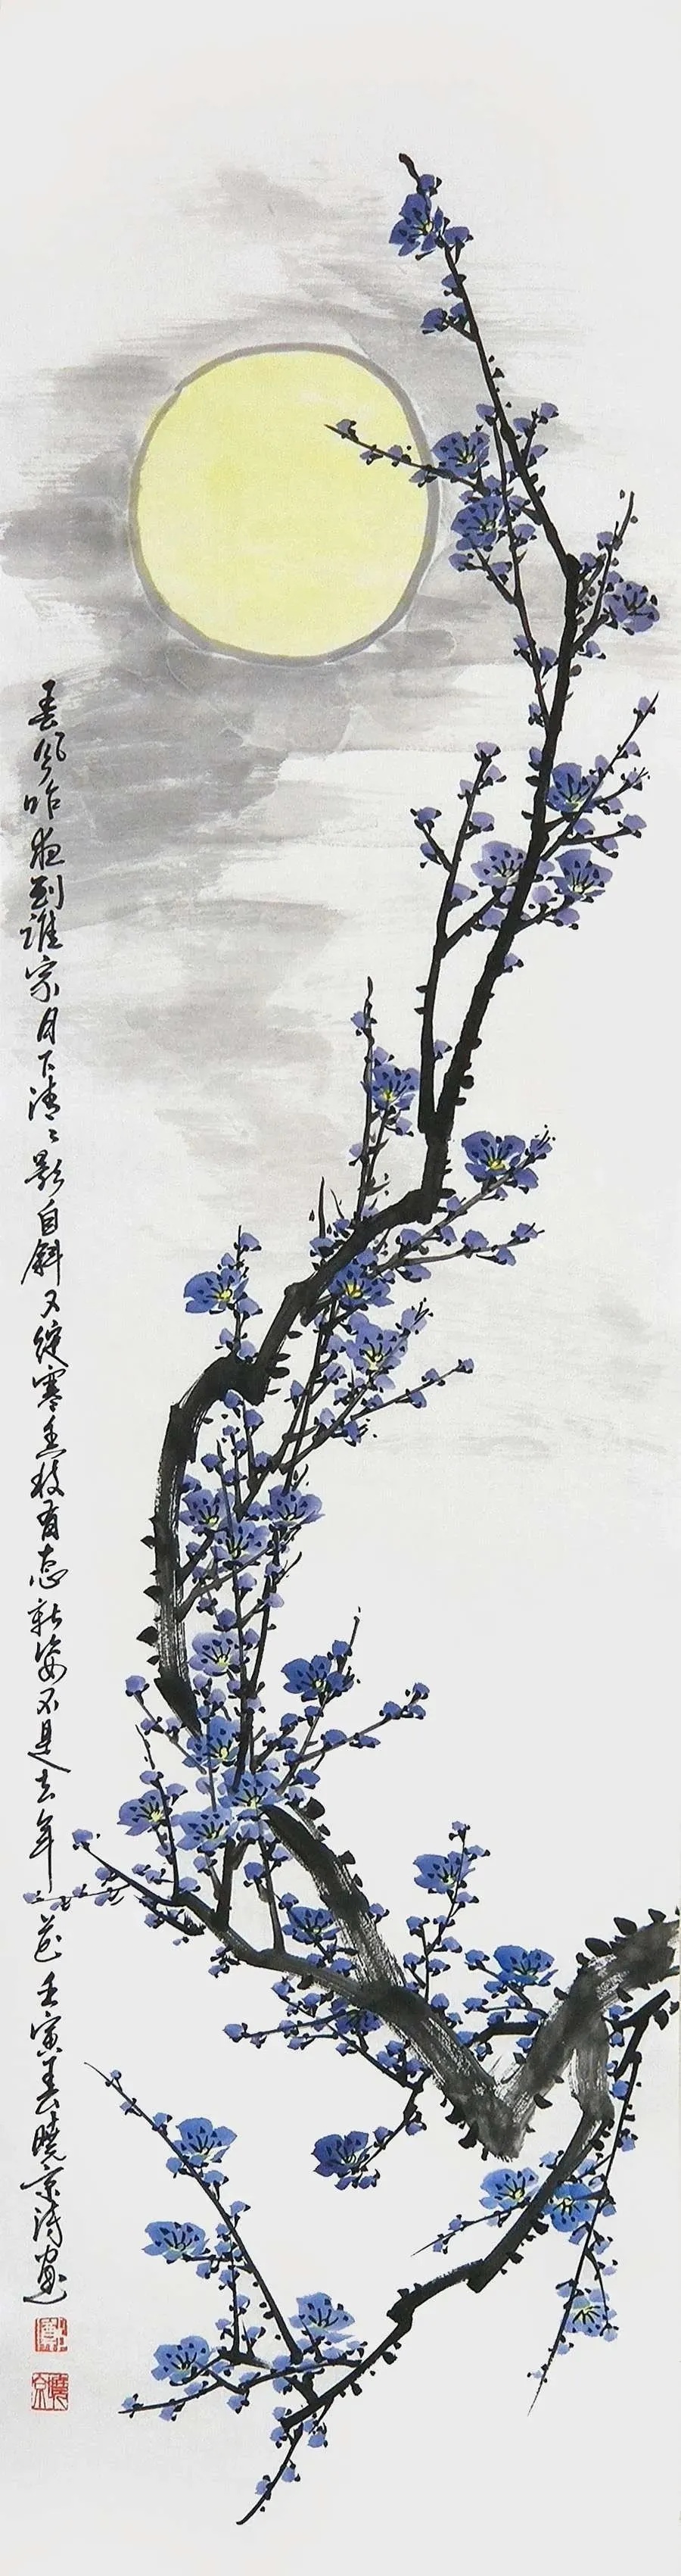 春风昨夜到谁家月下清々影自斜又绽寒香枝有态新姿不是去年花壬寅春晓京诗画